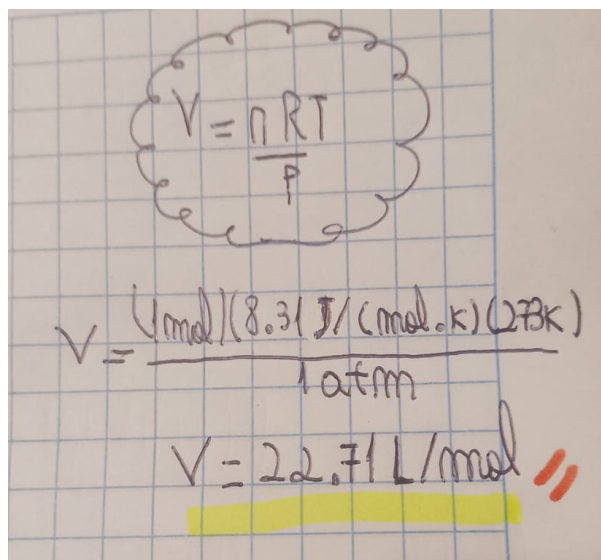 V = nRT
P
(1mol)(8.31J/(mol.K)(273K)
V =
1atm
V = 22.71L/mol